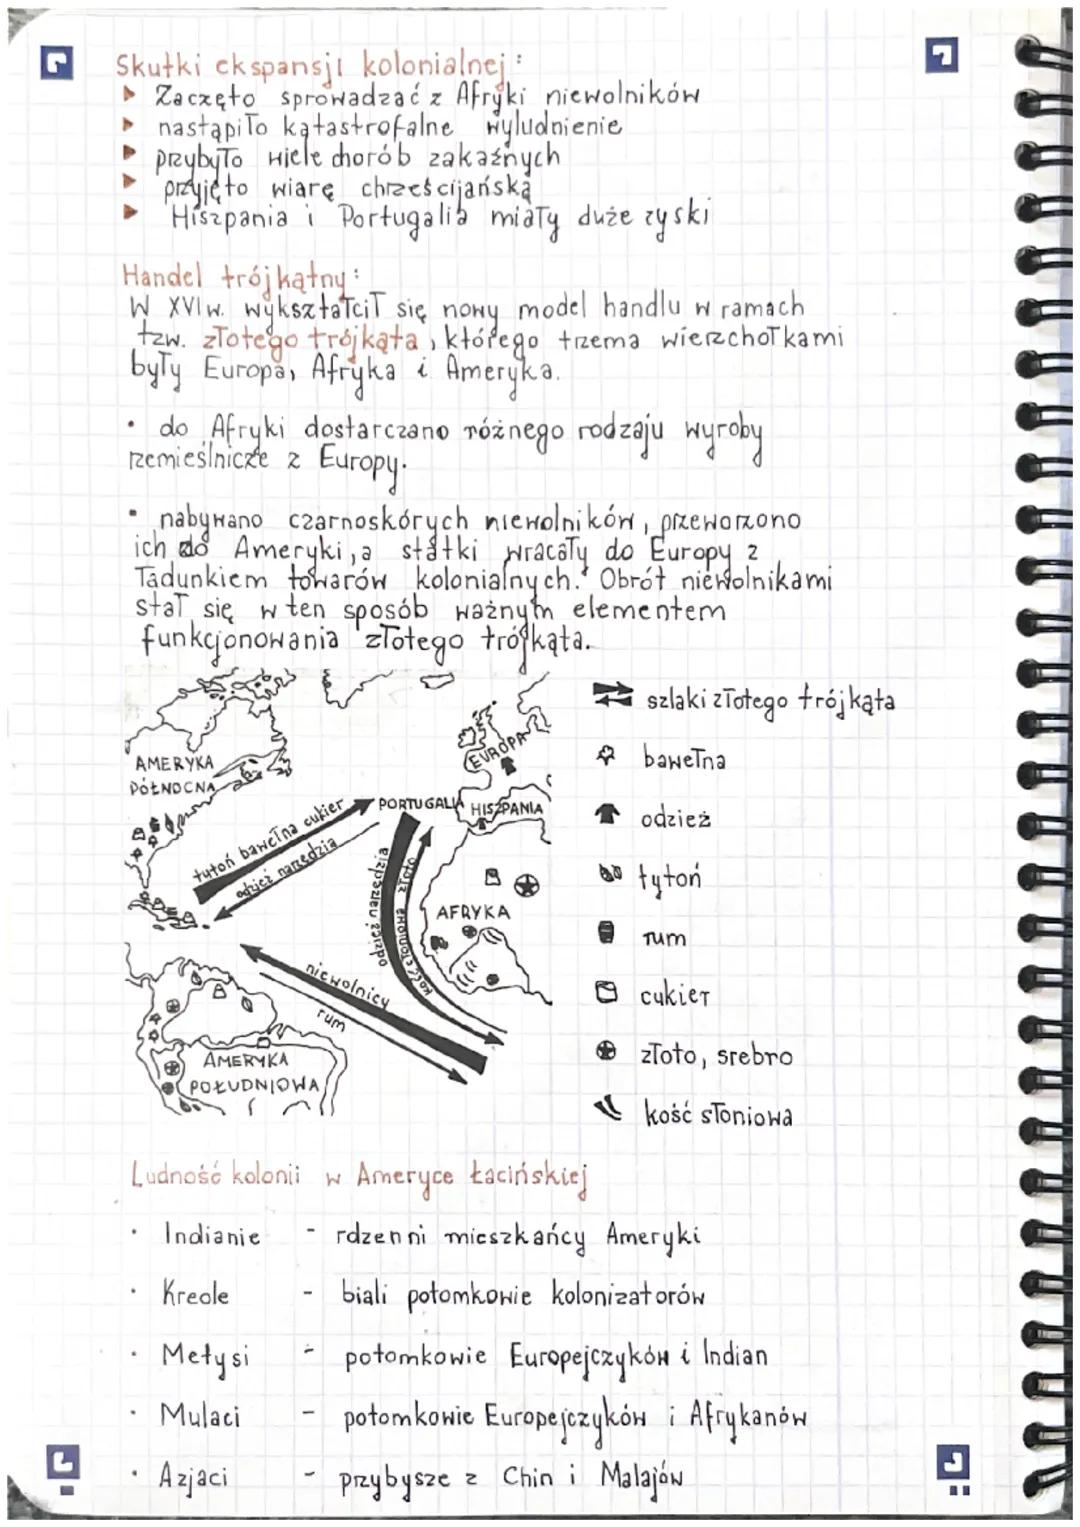 Skutki ekspansji kolonialnej:
Zaczęto sprowadzać z Afryki niewolników
nastąpiło katastrofalne wyludnienie
przybyło wiele chorób zakaźnych
przyjęto wiarę chrześcijańską
Hiszpania i Portugalia miały duże zyski
Handel trójkątny:
W XVI w. wykształcił się nowy model handlu w ramach
tzw. złotego trójkąta, którego trzema wierzchołkami
były Europa, Afryka i Ameryka.
• do Afryki dostarczano różnego rodzaju wyroby
rzemieślnicze z Europy.
• nabywano czarnoskórych niewolników, przeworzono
ich do Ameryki, a statki wracały do Europy z
ładunkiem towarów kolonialnych. Obrót niewolnikami
stał się w ten sposób ważnym elementem
funkcjonowania złotego trójkąta.
AMERYKA
PÓŁNOCNA
EUROPA
PORTUGALIA
HISZPANIA
tytoń bawełna cukier
odzież narzędzia
odzież narzędzia
kość słoniowa złoto
AFRYKA
niewolnicy
rum
AMERYKA
POŁUDNIOWA
szlaki złotego trójkąta
bawełna
odzież
tytoń
rum
cukier
złoto, srebro
kość słoniowa
Ludność kolonii w Ameryce Łacińskiej
• Indianie - rdzenni mieszkańcy Ameryki
• Kreole - biali potomkowie kolonizatorów
• Metysi - potomkowie Europejczyków i Indian
• Mulaci - potomkowie Europejczyków i Afrykanów
• Azjaci - przybysze z Chin i Malajów